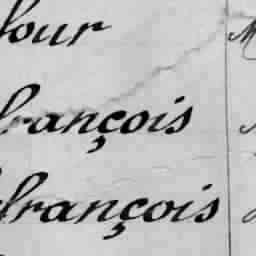 four
françois
françois